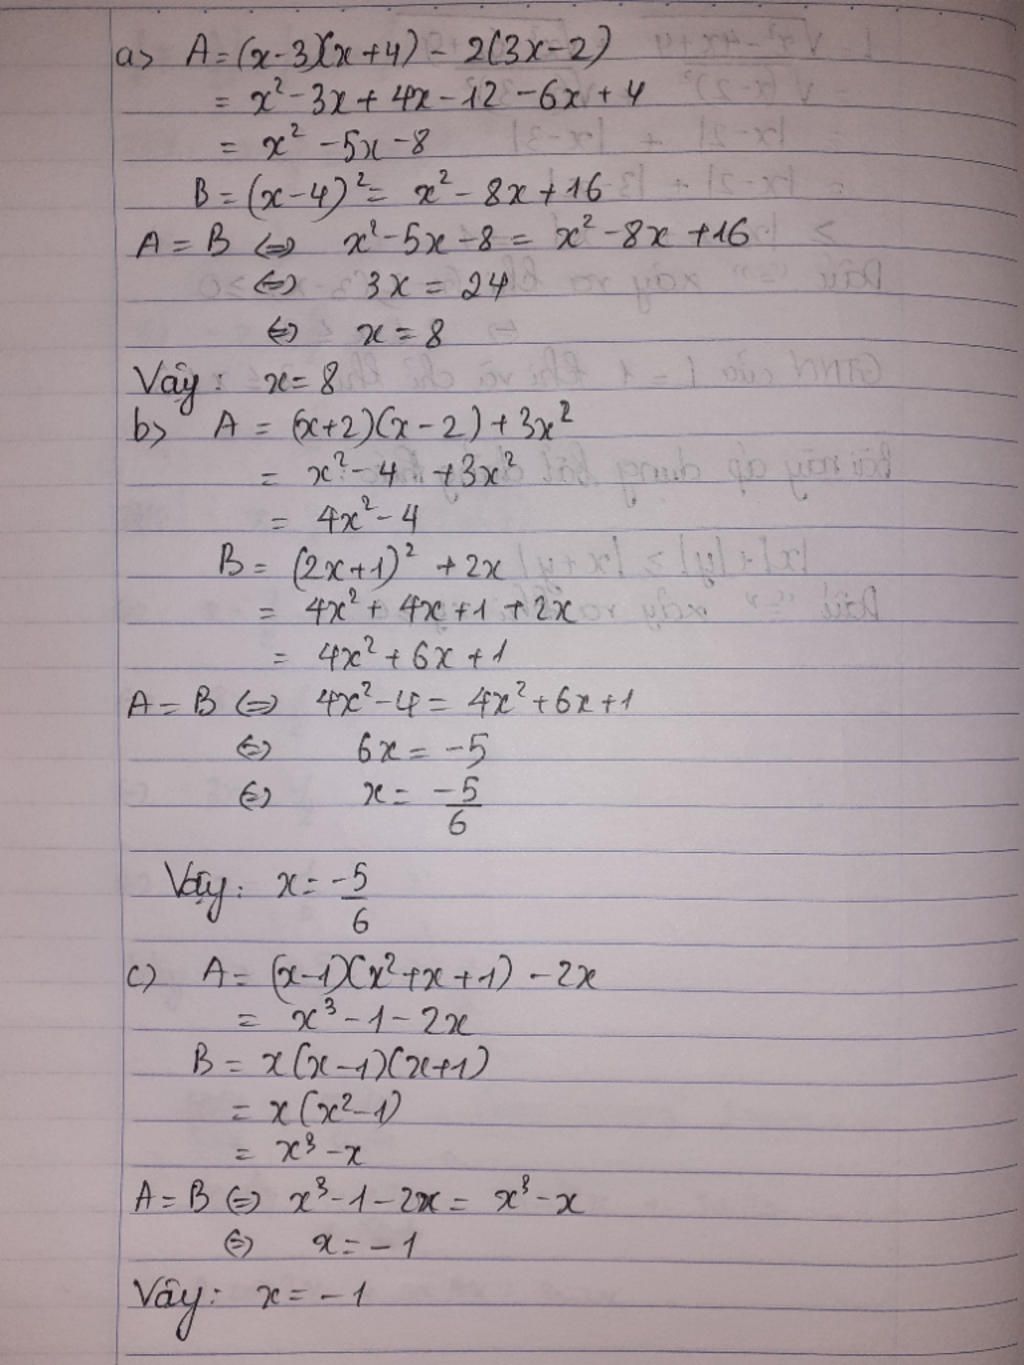 a> A = (x-3)(x+4) - 2(3x-2)
= x² - 3x + 4x - 12 - 6x + 4
= x² - 5x - 8
B = (x-4)² = x² - 8x + 16
A = B ⇔ x² - 5x - 8 = x² - 8x + 16
⇔ 3x = 24
⇔ x = 8
Vậy: x = 8
b> A = (x+2)(x-2) + 3x²
= x² - 4 + 3x²
= 4x² - 4
B = (2x+1)² + 2x
= 4x² + 4x + 1 + 2x
= 4x² + 6x + 1
A = B ⇔ 4x² - 4 = 4x² + 6x + 1
⇔ 6x = -5
⇔ x = -5/6
Vậy: x = -5/6
c) A = (x-1)(x² + x + 1) - 2x
= x³ - 1 - 2x
B = x(x-1)(x+1)
= x(x² - 1)
= x³ - x
A = B ⇔ x³ - 1 - 2x = x³ - x
⇔ x = -1
Vậy: x = -1